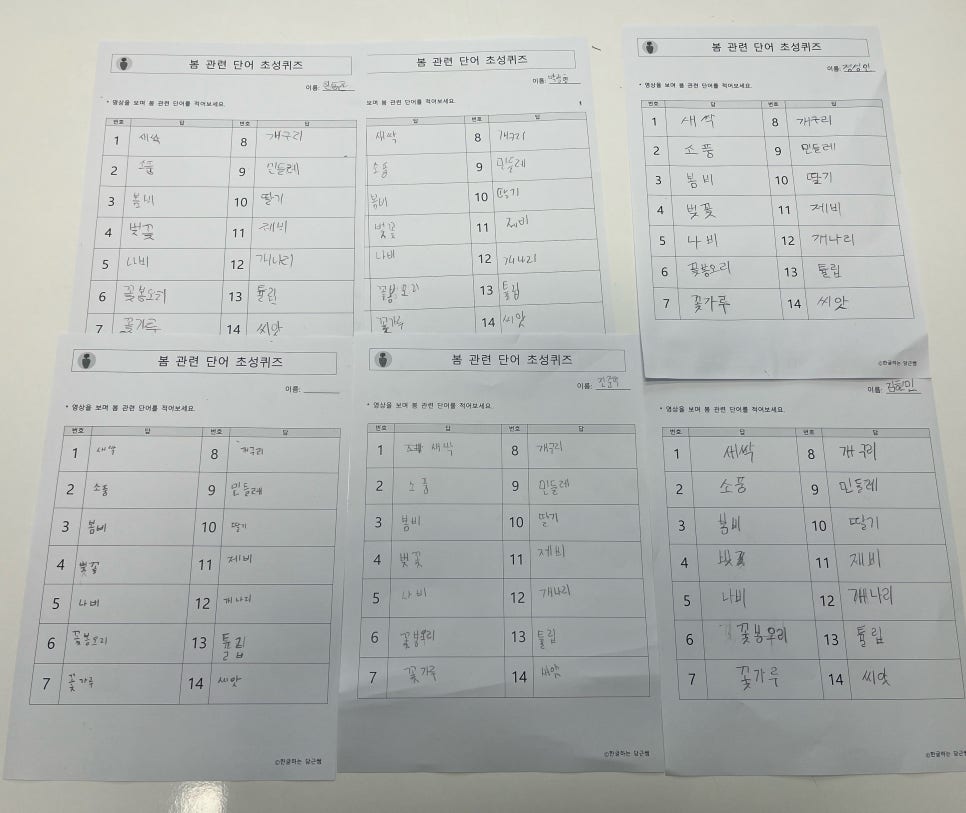 봄 관련 단어 초성퀴즈
이름:
* 영상을 보며 봄 관련 단어를 적어보세요.
번호 답 번호 답
1 새싹 8 개구리
2 소풍 9 민들레
3 봄비 10 딸기
4 벚꽃 11 제비
5 나비 12 개나리
6 꽃봉오리 13 튤립
7 꽃가루 14 씨앗
봄 관련 단어 초성퀴즈
이름:
보며 봄 관련 단어를 적어보세요. 1
답 번호 답
새싹 8 개구리
소풍 9 민들레
봄비 10 딸기
벚꽃 11 제비
나비 12 개나리
꽃봉오리 13 튤립
꽃가루 14 씨앗
봄 관련 단어 초성퀴즈
이름:
* 영상을 보며 봄 관련 단어를 적어보세요.
번호 답 번호 답
1 새싹 8 개구리
2 소풍 9 민들레
3 봄비 10 딸기
4 벚꽃 11 제비
5 나비 12 개나리
6 꽃봉오리 13 튤립
7 꽃가루 14 씨앗
©한글하는 당근쌤
봄 관련 단어 초성퀴즈
이름:
* 영상을 보며 봄 관련 단어를 적어보세요.
번호 답 번호 답
1 새싹 8 개구리
2 소풍 9 민들레
3 봄비 10 딸기
4 벚꽃 11 제비
5 나비 12 개나리
6 꽃봉오리 13 튤립
7 꽃가루 14 씨앗
©한글하는 당근쌤
봄 관련 단어 초성퀴즈
이름:
* 영상을 보며 봄 관련 단어를 적어보세요.
번호 답 번호 답
1 새싹 8 개구리
2 소풍 9 민들레
3 봄비 10 딸기
4 벚꽃 11 제비
5 나비 12 개나리
6 꽃봉우리 13 튤립
7 꽃가루 14 씨앗
©한글하는 당근쌤
이름:
* 영상을 보며 봄 관련 단어를 적어보세요.
번호 답 번호 답
1 새싹 8 개구리
2 소풍 9 민들레
3 봄비 10 딸기
4 벚꽃 11 제비
5 나비 12 개나리
6 꽃봉우리 13 튤립
7 꽃가루 14 씨앗
©한글하는 당근쌤